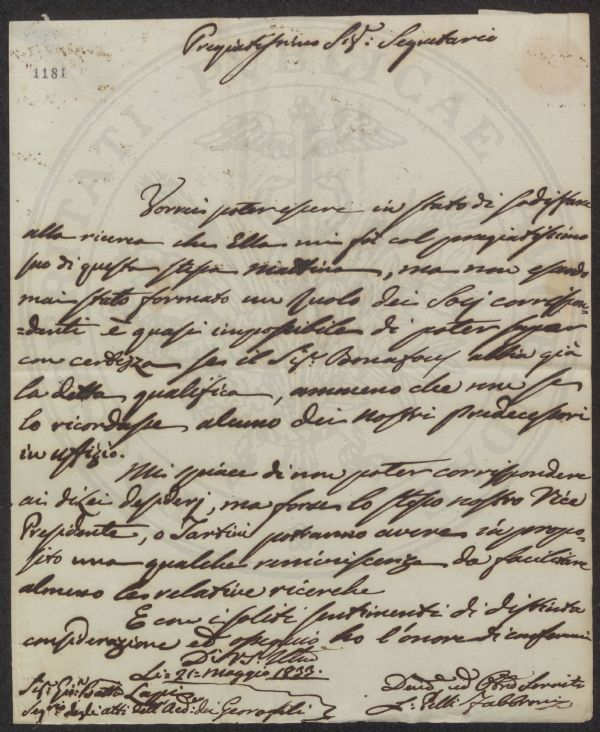 Pregiatissimo Sig.r Segretario
1181
Vorrei poter essere in stato di sodisfare
alla ricerca che Ella mi fà col pregiatissimo
suo di questa stessa mattina, ma non essendo
mai stato formato un Ruolo dei Socj corrispon=
=denti è quasi impossibile di poter saper
con certezza se il Sig.r Bonafous abbia già
la detta qualifica, ammeno che non se
lo ricordasse alcuno dei nostri predecessori
in uffizio.
Mi spiace di non poter corrispondere
ai di Lei desiderj, ma forse lo stesso nostro Vice
Presidente, o Tartini potranno avere in propo=
sito una qualche reminiscenza da facilitare
almeno le relative ricerche
E con i soliti sentimenti di distinta
considerazione ed ossequio ho l'onore di confermarmi
Di V.S. Ill.ma
Li 21 Maggio 1833.
Sig.r Gio: Batta Lapi
Seg.rio degli atti dell'Acc.a dei Georgofili
Dev.o ed Obb.o Servit.e
L: Pelli Fabbroni